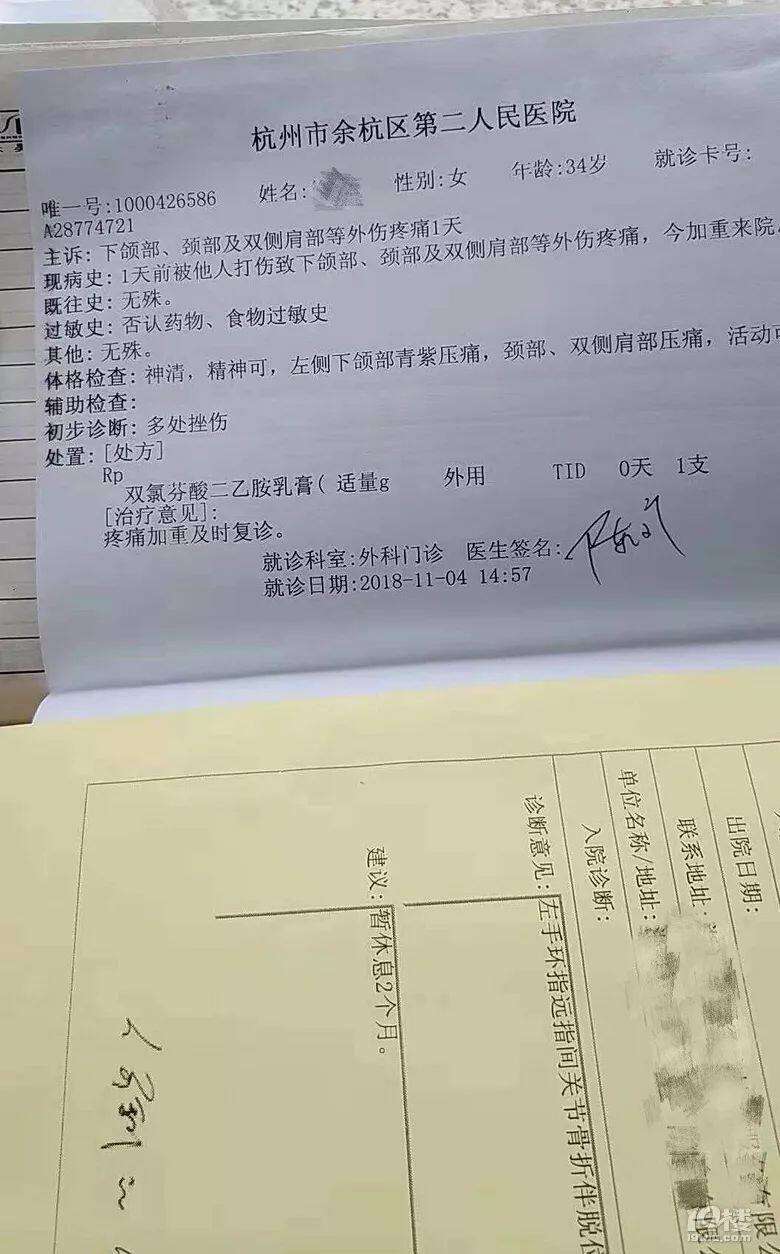 杭州市余杭区第二人民医院
唯一号:1000426586 姓名: 性别:女 年龄:34岁 就诊卡号:
A28774721
主诉: 下颌部、颈部及双侧肩部等外伤疼痛1天
现病史: 1天前被他人打伤致下颌部、颈部及双侧肩部等外伤疼痛，今加重来院
既往史: 无殊。
过敏史: 否认药物、食物过敏史
其他: 无殊。
体格检查: 神清，精神可，左侧下颌部青紫压痛，颈部、双侧肩部压痛，活动
辅助检查:
初步诊断: 多处挫伤
处置: [处方]
Rp
双氯芬酸二乙胺乳膏( 适量g 外用 TID 0天 1支
[治疗意见]:
疼痛加重及时复诊。
就诊科室:外科门诊 医生签名:
就诊日期:2018-11-04 14:57
出院日期:
联系地址:
单位名称/地址:
有限公
入院诊断:
诊断意见: 左手环指远指间关节骨折伴脱位
建议: 暂休息2个月。
19楼